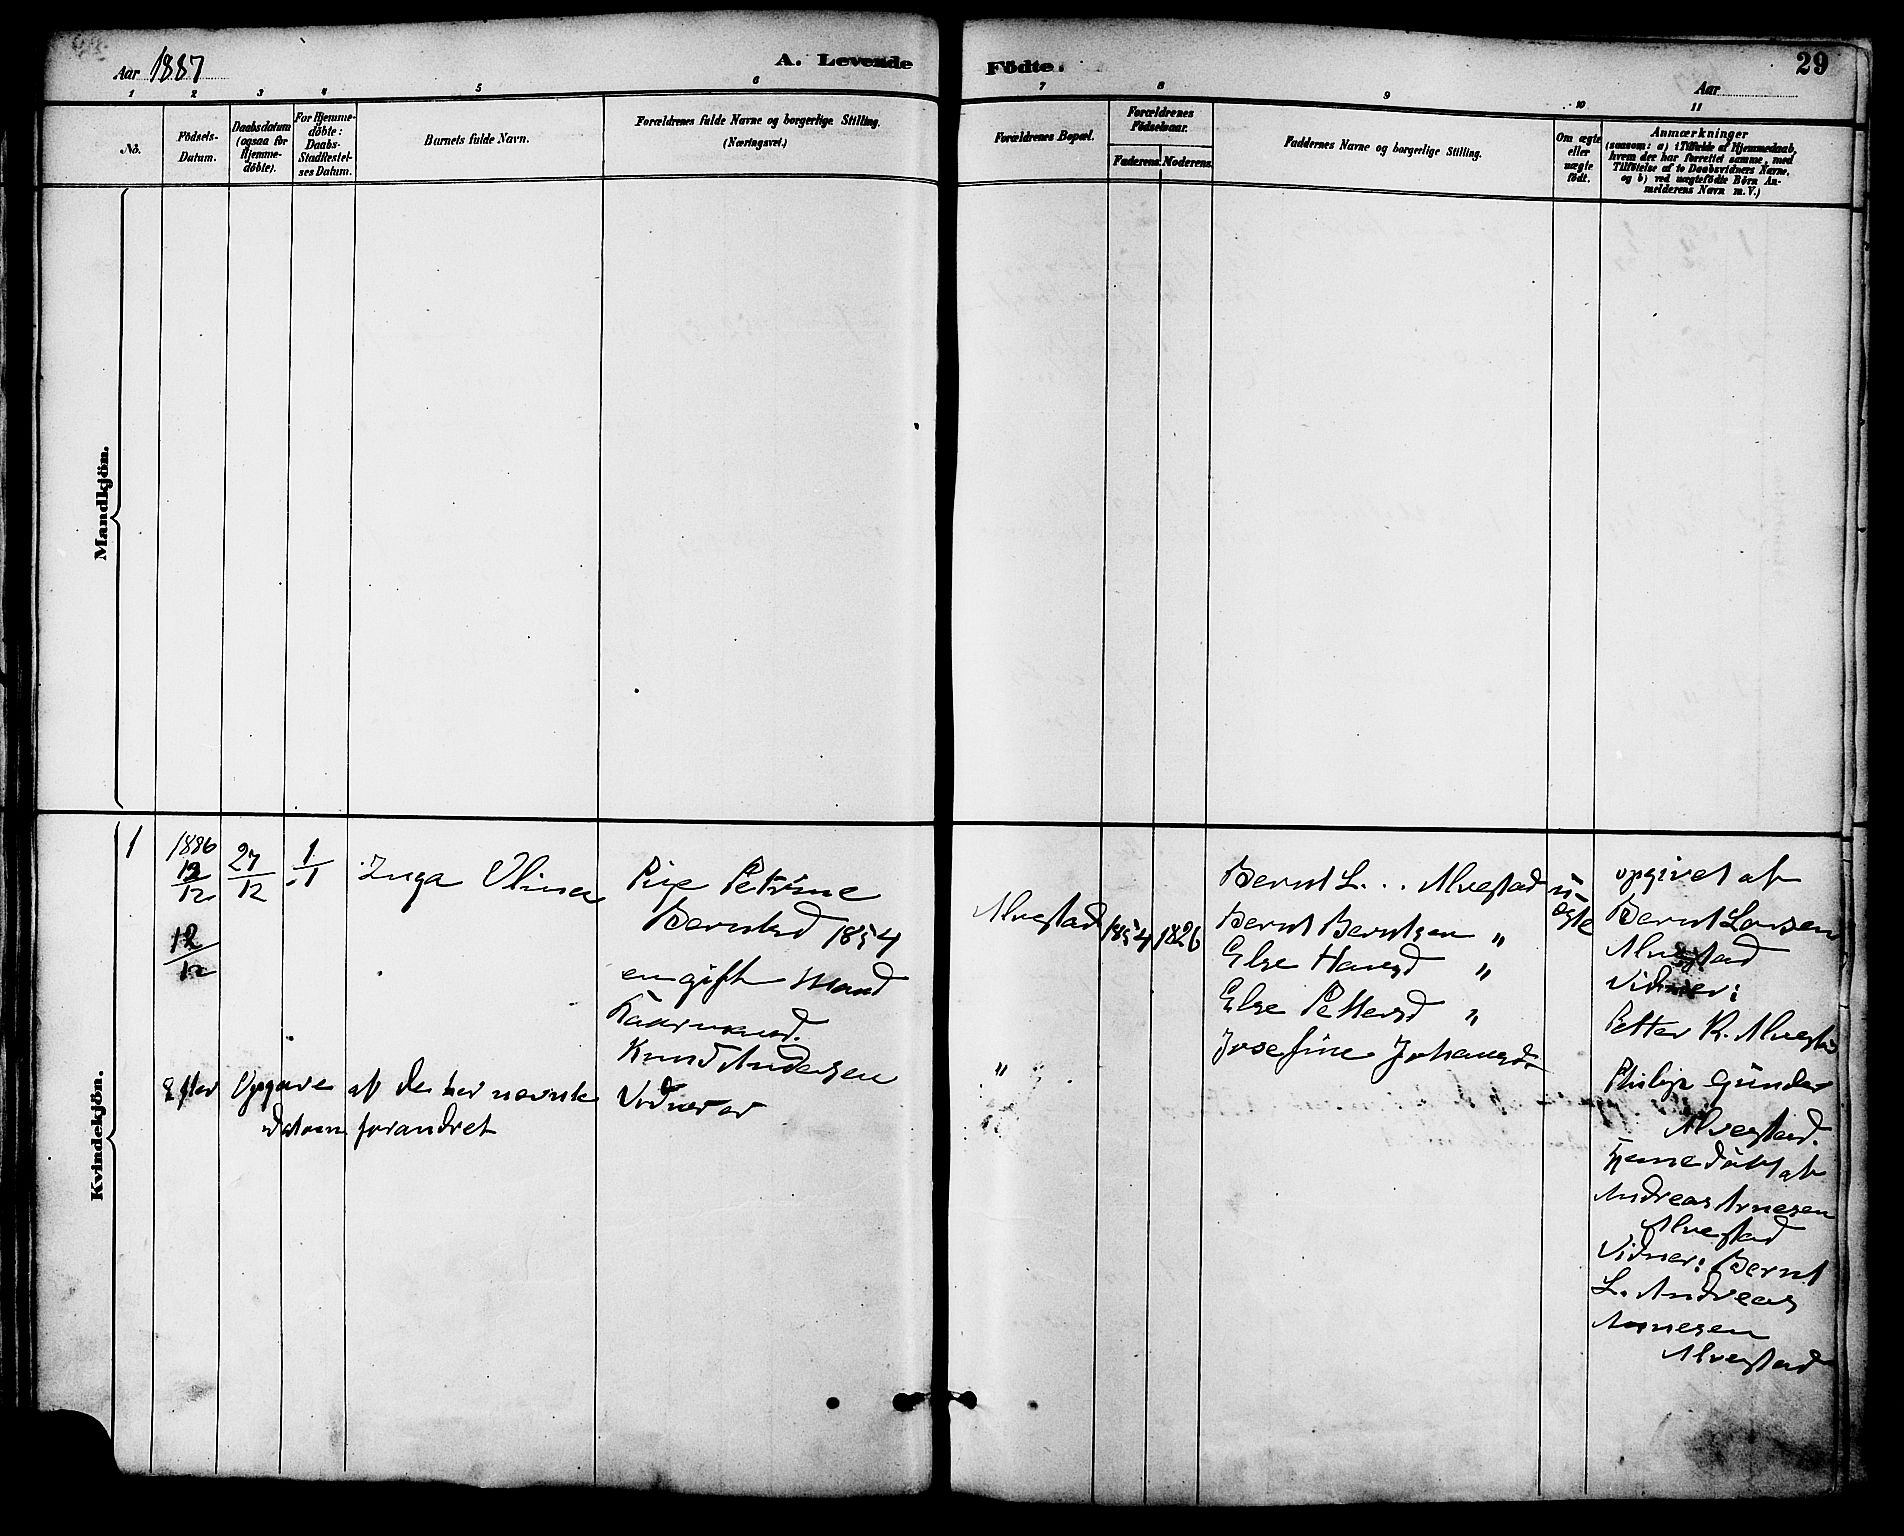 Aar 1887
A. Levende
Födte.
29
Aar
1 2 3 4 5 6 7 8 9 10 11
No.
Födsels-
Datum.
Daabsdatum
(ogsaa for
Hjemme-
döbte).
For Hjemme-
døbte:
Daabs-
Stadfestel-
ses Datum.
Barnets fulde Navn.
Forældrenes fulde Navne og borgerlige Stilling.
(Næringsvei.)
Forældrenes Bopæl.
Forældrenes
Födselsaar.
Faderens. Moderens.
Faddernes Navne og borgerlige Stilling.
Om ægte
eller
uægte
født.
Anmærkninger
(saasom: a) i Tilfælde af Hjemmedaab,
hvem der har forrettet samme, med
Tilföielse af to Daabsvidners Navne,
og b) ved uægtefödte Börn An-
melderens Navn m. V.)
Mandkjön.
Kvindekjön.
1
1886
12
12
12
27
12
1
1
Inga Olina
Pige Petrine
Berntsd 1854
en gift Mand
Knud Andersen
Alvestad
"
1854
1826
Bernt L... Alvestad
Bernt Berntsen "
Else Hansd "
Else Pettersd "
Josefine Johansd
u-
ægte
opgivet af
Bernt Larsen
Alvestad
Vidner:
Petter K. Alvestad
Philip Gunder
Alvestad.
Hjemedöbt af
Andreas Arnesen
Alvestad
Vidner: Bernt
L. Andreas
Arnesen
Alvestad
Efter Opgave af de her nævnte Vidner er
datoen forandret